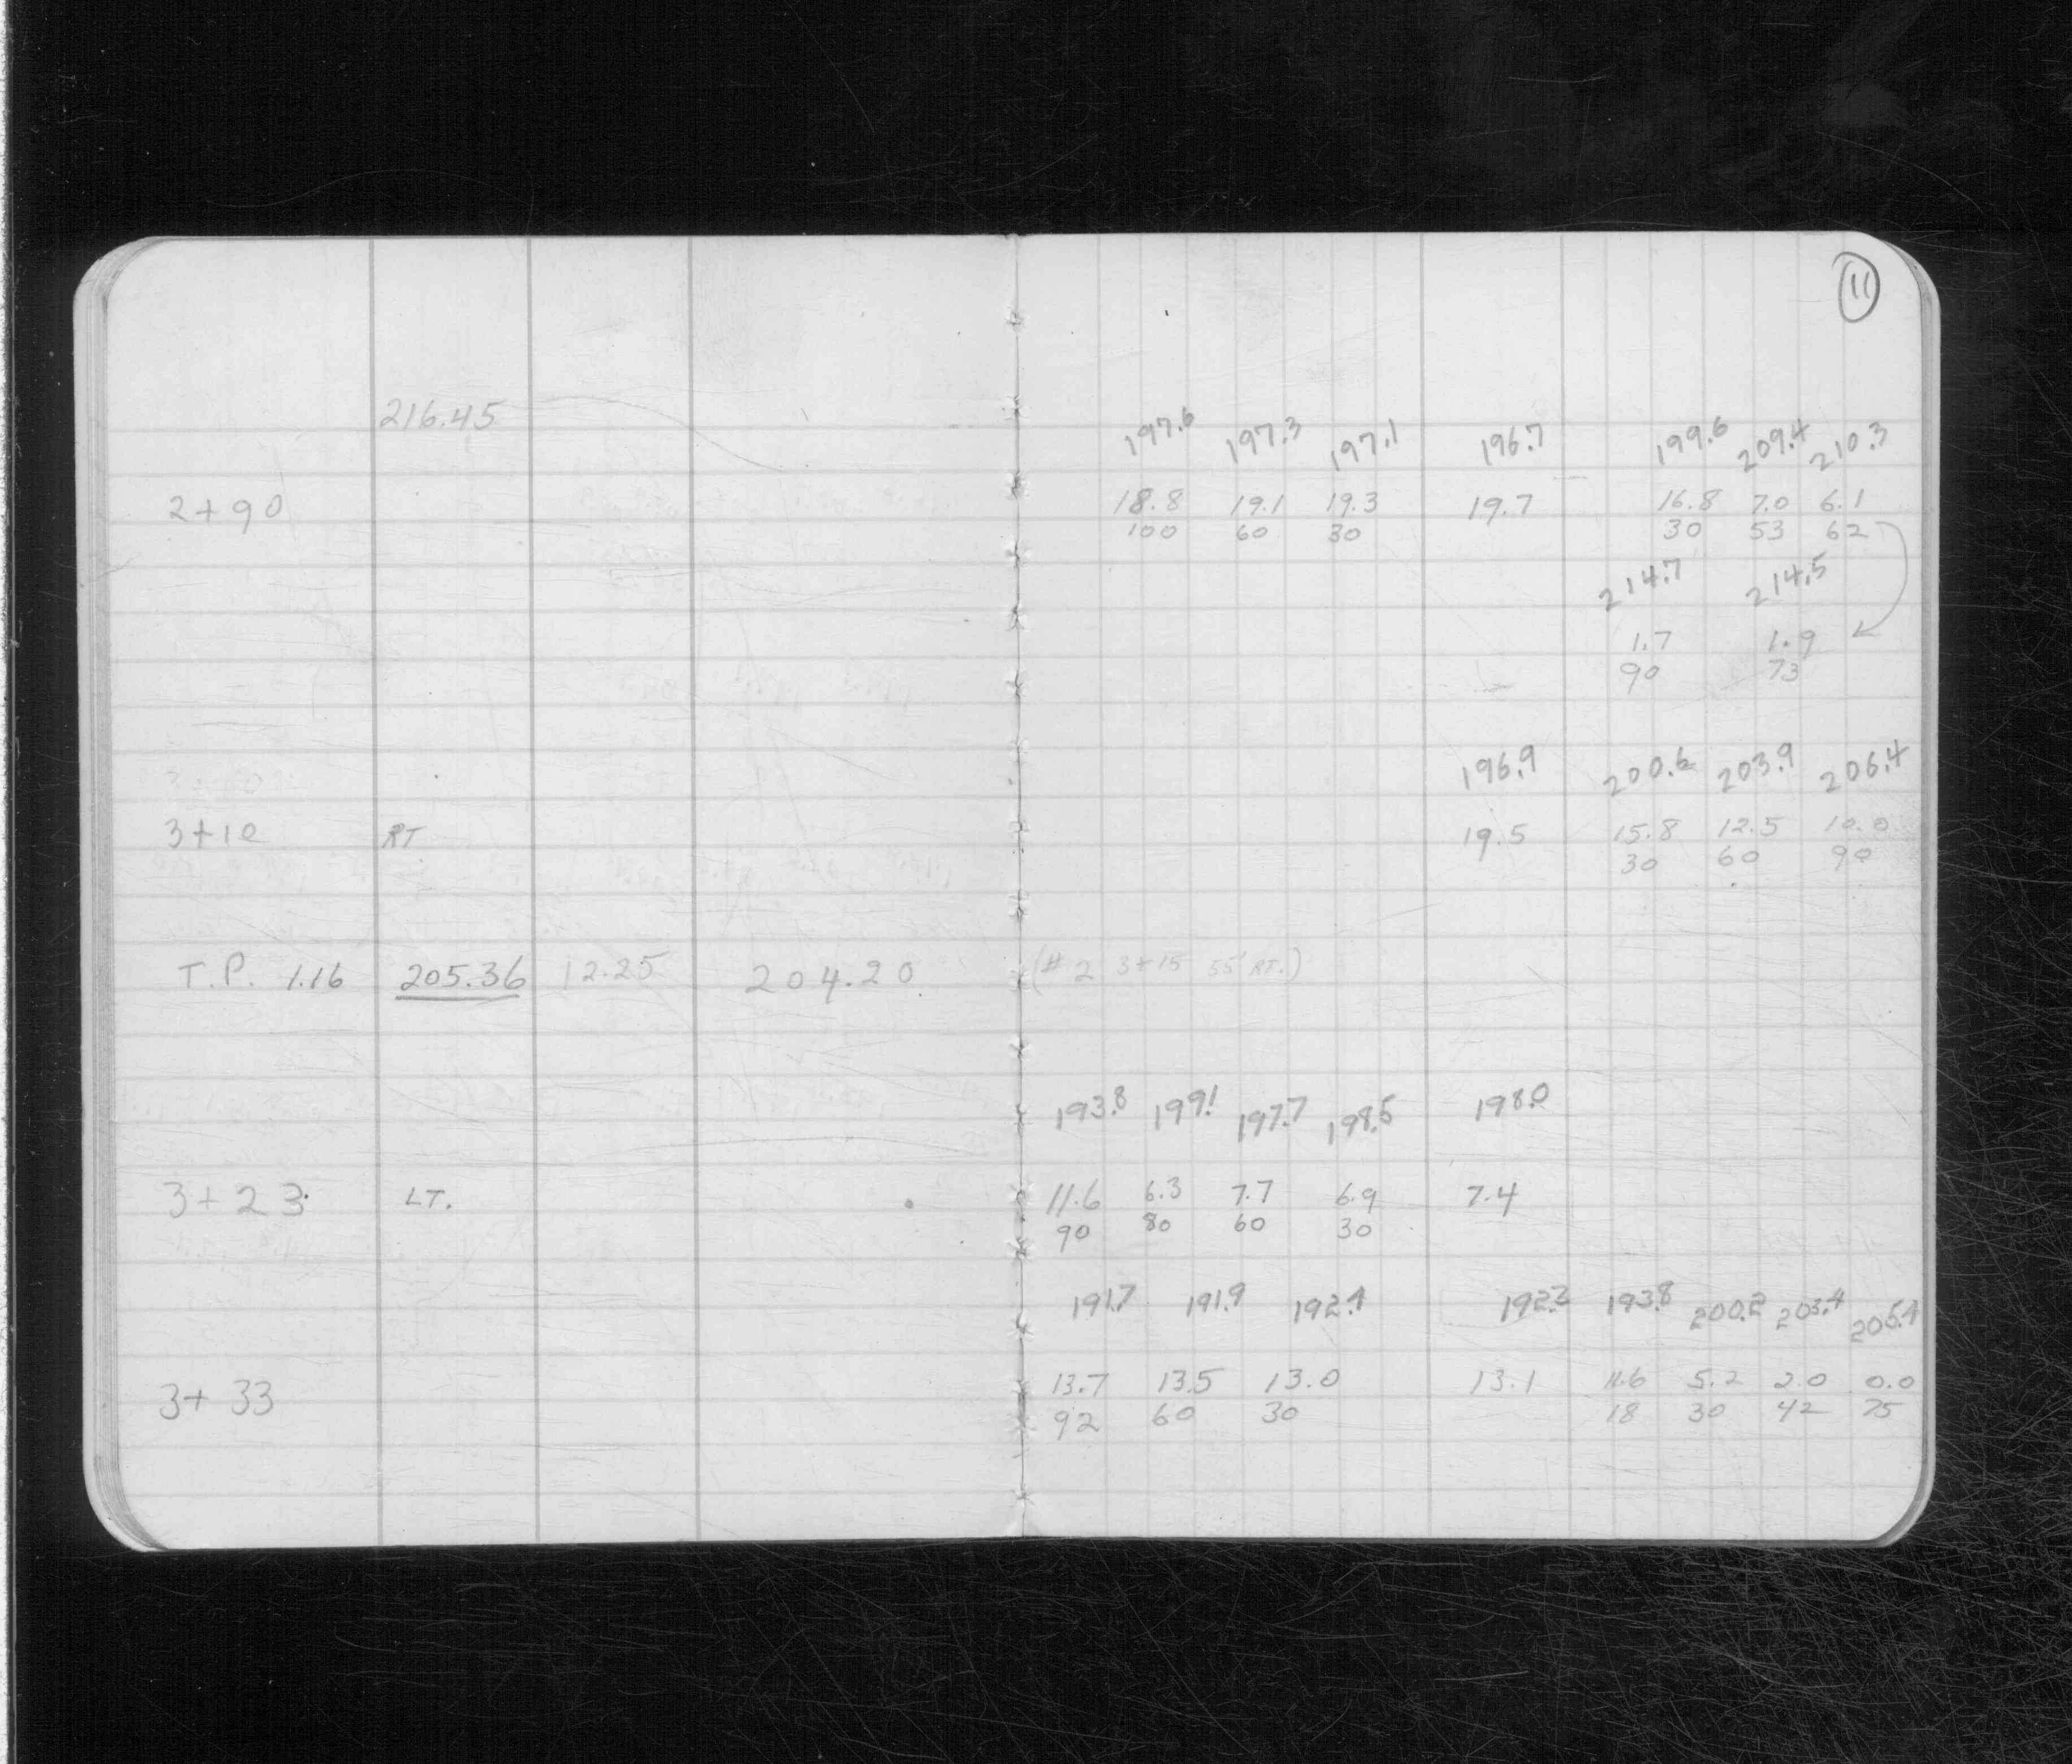 11
216.45 197.6 197.3 197.1 196.7 199.6 209.4 210.3
2+90 18.8 19.1 19.3 19.7 16.8 7.0 6.1
100 60 30 30 53 62
214.7 214.5
1.7 1.9
90 73
196.9 200.6 203.9 206.4
3+10 RT 19.5 15.8 12.5 10.0
30 60 90
T.P. 1.16 205.36 12.25 204.20 (#2 3+15 55' RT.)
193.8 199.1 197.7 198.5 198.0
3+23 LT. 11.6 6.3 7.7 6.9 7.4
90 80 60 30
191.7 191.9 192.4 192.3 193.8 200.2 203.4 205.4
3+33 13.7 13.5 13.0 13.1 11.6 5.2 2.0 0.0
92 60 30 18 30 42 75